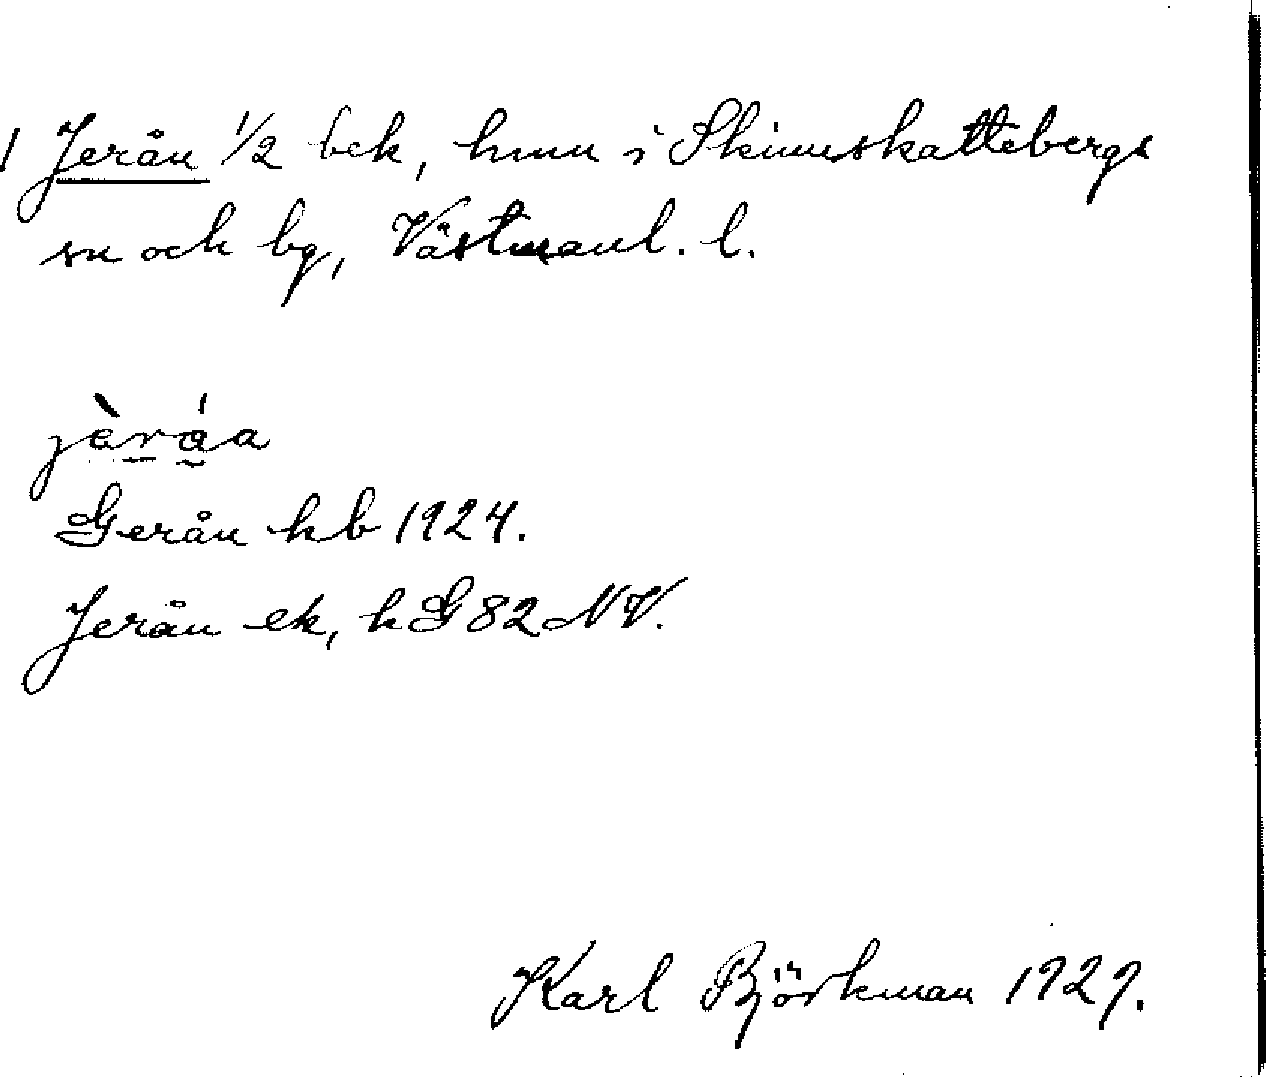 1 Jerån 1/2 bek, hmn i Skinnskattebergs
sn och bg, Västmanl. l.
jèráa
Gerån kb 1924.
Jerån ek, h G 82 NV.
Karl Björkman 1929.